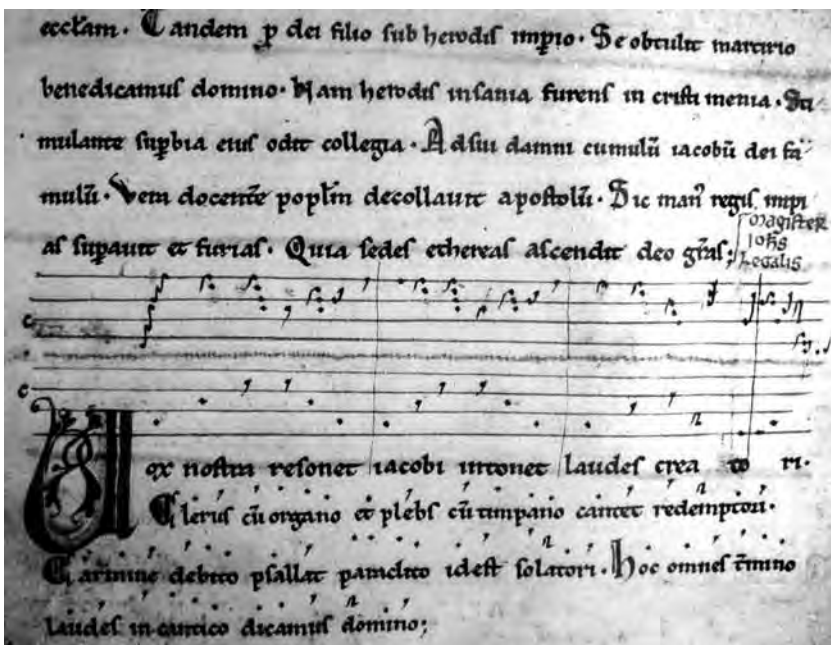 eccłam. Tandem ꝑ dei filio sub herodis imꝑio. Se obtulit martirio
benedicamus domino. Nam herodis insania furens in cristi menia. Sti
mulante suꝑbia eius odit collegia. Ad sui damni cumulū iacobū dei fa
mulū. Vera docentē poplm decollauit apostolū. Sic man᷒ regis impi
as suꝑauit et furias. Quia sedes ethereas ascendit deo gr̄as;
Magister
Ioh̄s
Legalis
c
c
Vox nostra resonet iacobi intonet laudes crea to ri.
Clerus cū organo et plebs cū timpano cantet redemptori.
Carmine debito psallat paraclito idest solatori. Hoc omnes t̄mino
laudes in cantico dicamus domino;